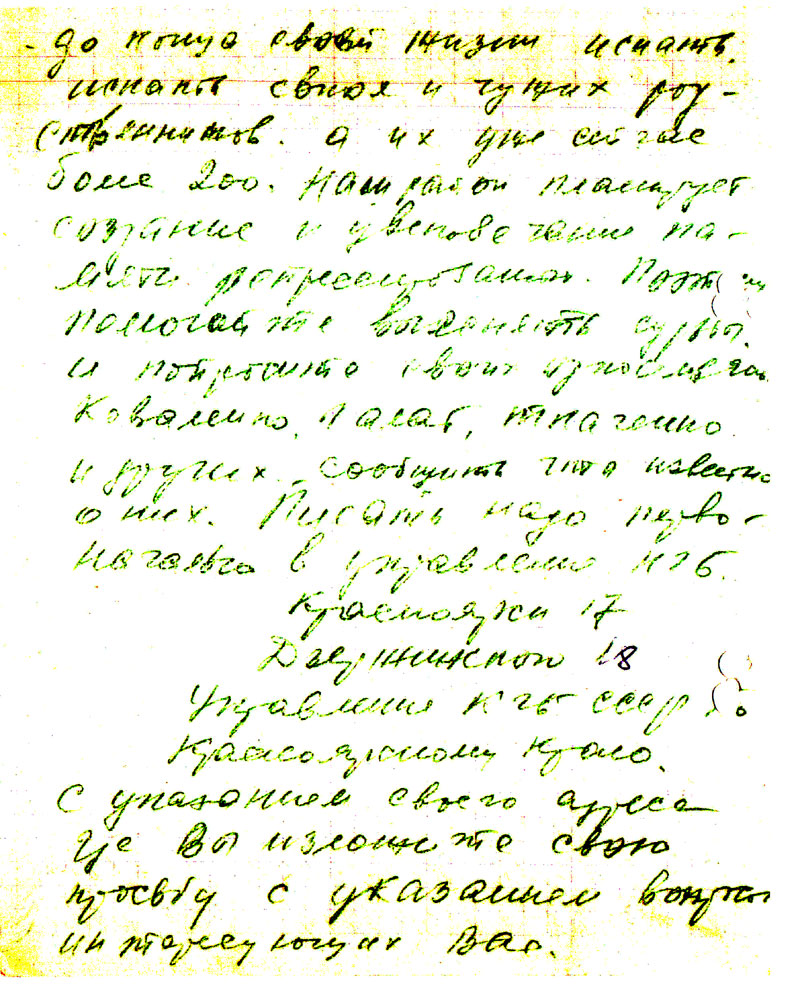 - до конца своей жизни искать.
искать своих и чужих род-
ственников. а их уже сейчас
более 200. Наш район планирует
создание и увековечание па-
мяти репрессированных. Поэт
помогайте выяснять судьбы
и попросите своих
Коваленко, Палат, Ткаченко
и других сообщить что известно
о них. Писать надо перво-
начально в управление КГБ.
Красноярск 17
Дзержинского 18
Управление КГБ СССР по
Красноярскому Краю.
С указанием своего адреса
где Вы изложите свою
просьбу с указанием вопросов
интересующих Вас.